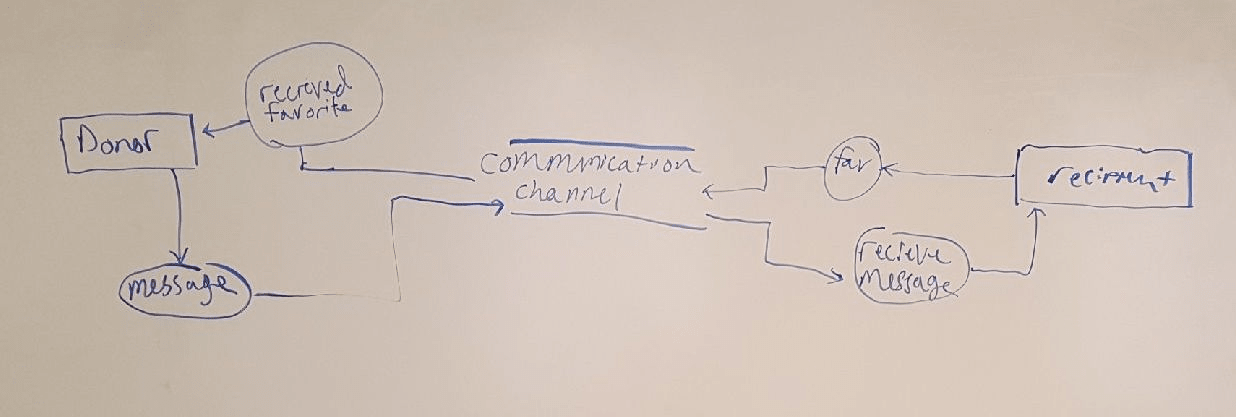 recieved
favorite
Donor
communication
channel
fav
message
recieve
message